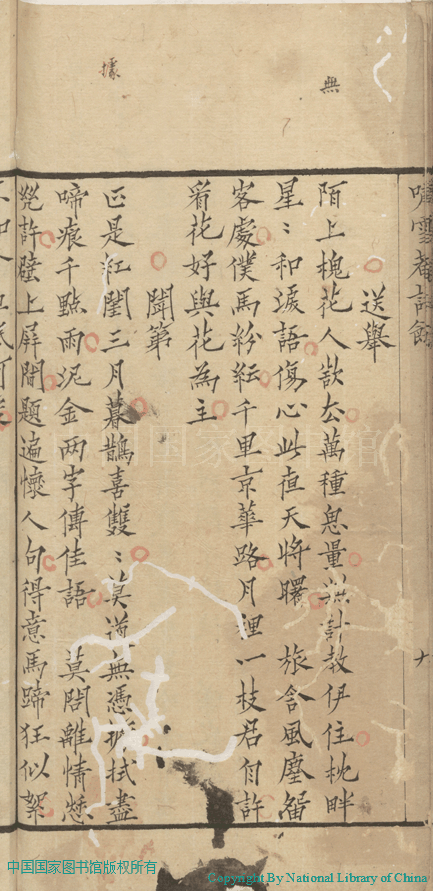 無
據
嘯雪菴詩餘
十
送舉
陌上槐花人欲去萬種思量無計教伊住枕畔
星〻和淚語傷心此直天將曙　旅舍風塵留
客處僕馬紛紜千里京華路月裡一枝君自許
看花好與花為主
聞第
正是紅閨三月暮鵲喜雙〻莫道無憑據拭盡
啼痕千點雨泥金兩字傳佳語　莫問離情愁
幾許壁上屏間題遍懷人句得意馬蹄狂似絮
中国国家图书馆版权所有
Copyright By National Library of China